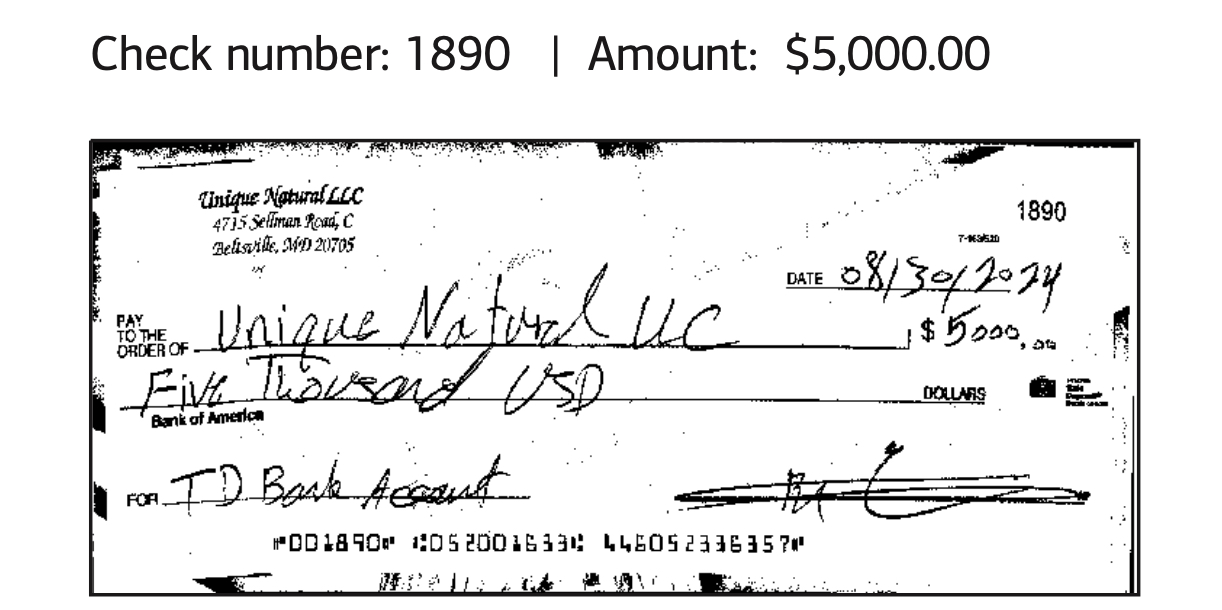 Check number: 1890 | Amount: $5,000.00
Unique Natural LLC
4715 Sellman Road, C
Beltsville, MD 20705
1890
DATE 08/30/2024
PAY TO THE ORDER OF Unique Natural LLC $ 5000.00
Five Thousand USD DOLLARS
Bank of America
FOR TD Bank Account
⑈001890⑈ ⑆052001633⑆ 446052336357⑈